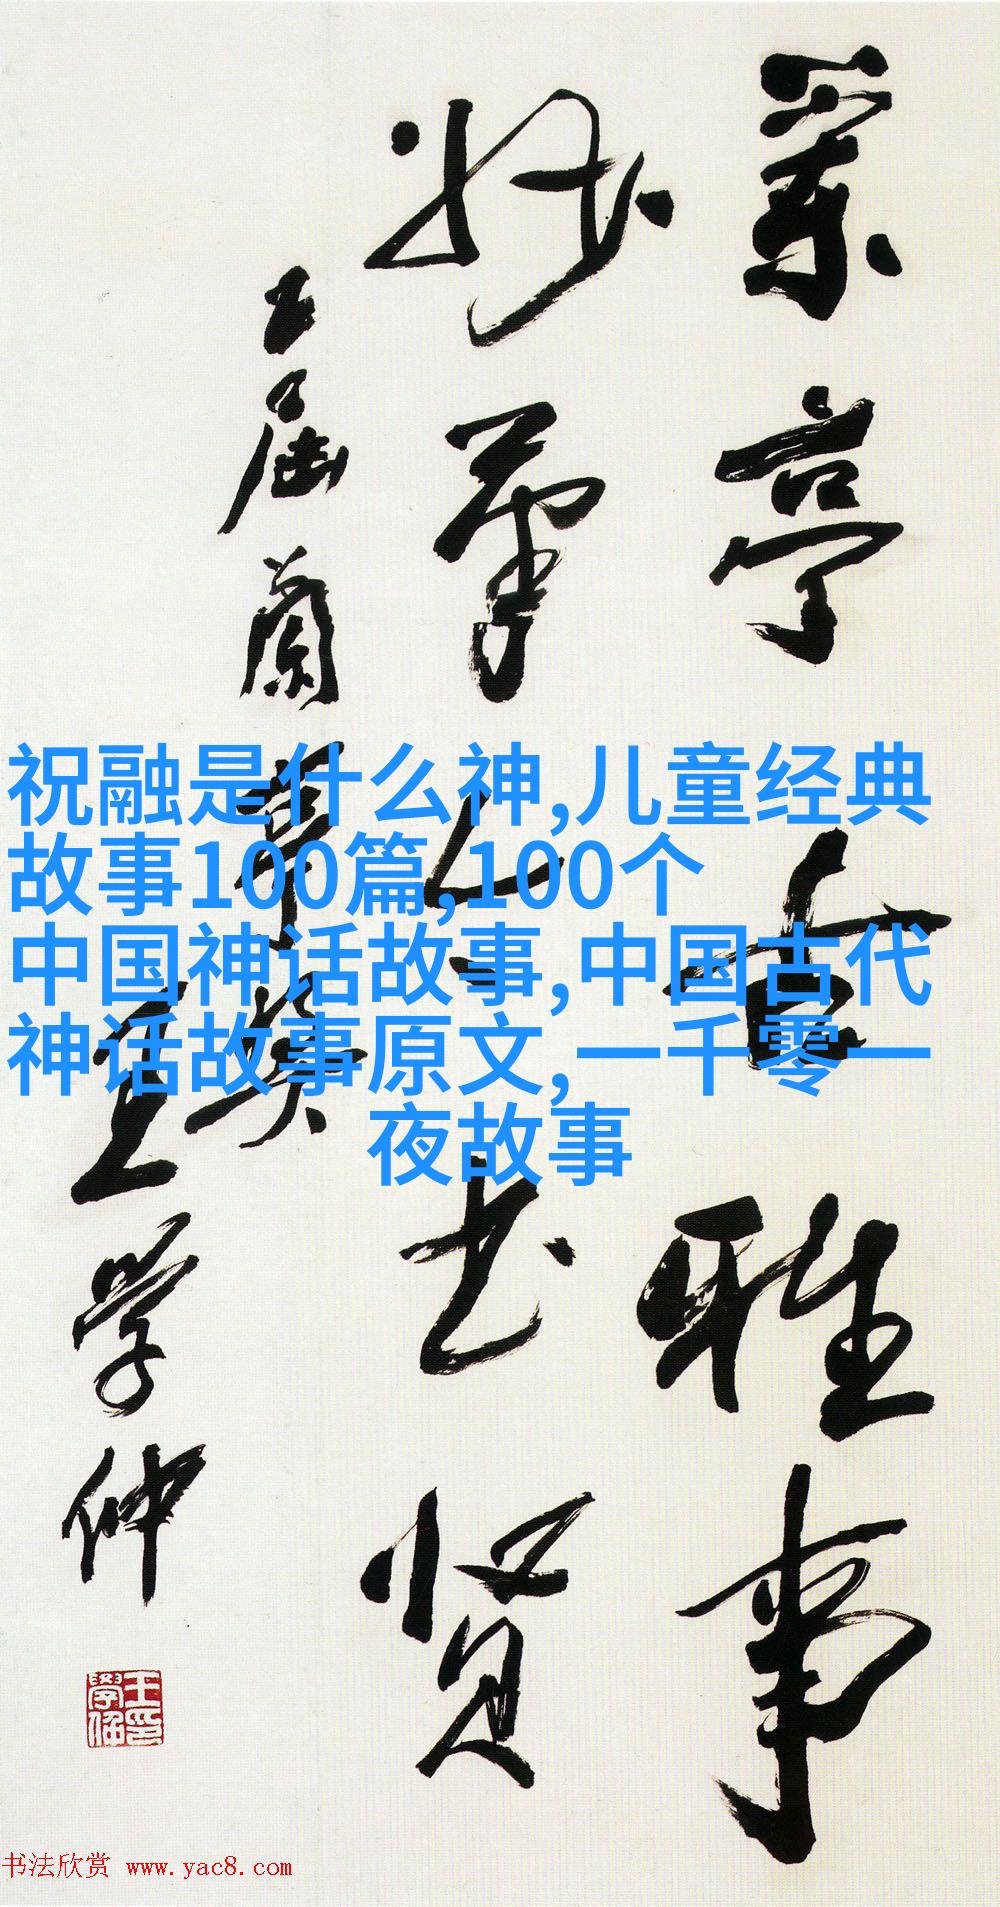 亭古雅事
笔书贤
届蘭亭奖
王学仲
祝融是什么神,儿童经典
故事100篇,100个
中国神话故事,中国古代
神话故事原文,一千零一
夜故事
书法欣赏 www.yac8.com